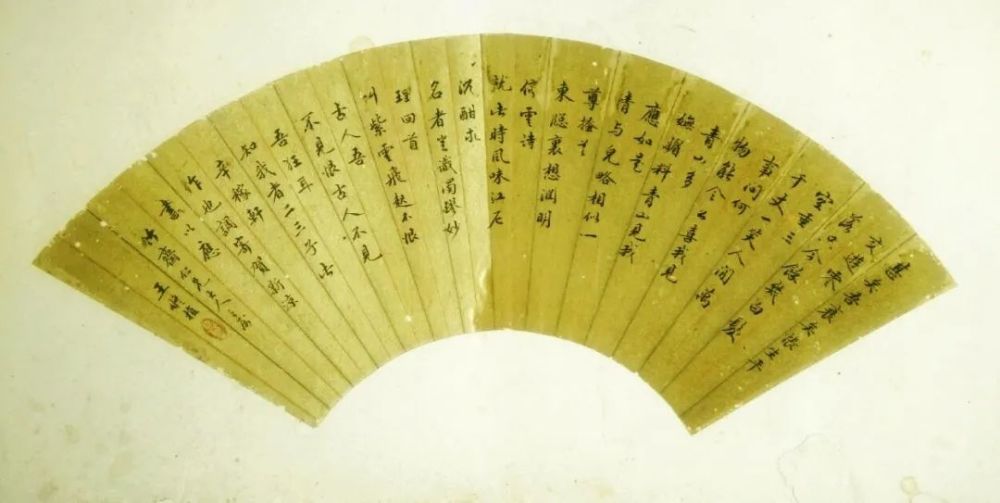 甚矣吾衰矣悵生平
交遊零
落只今餘幾白髮
空垂三
千丈一笑人間萬
事問何
物能令公喜我見
青山多
嫵媚料青山見我
應如是
情与皃略相似一
尊搔首
東窗裏想淵明
停雲詩
就此時風味江左
沉酣求
名者豈識濁醪妙
理回首
叫紫雲飛起不恨
古人吾
不見恨古人不見
吾狂耳
知我者二三子此
辛稼軒
作也調寄賀新涼
書以應
齋仁兄大人
王